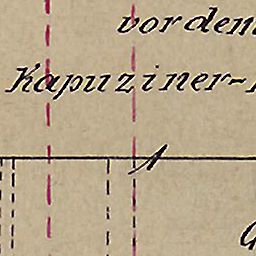 vor dem
Kapuziner-